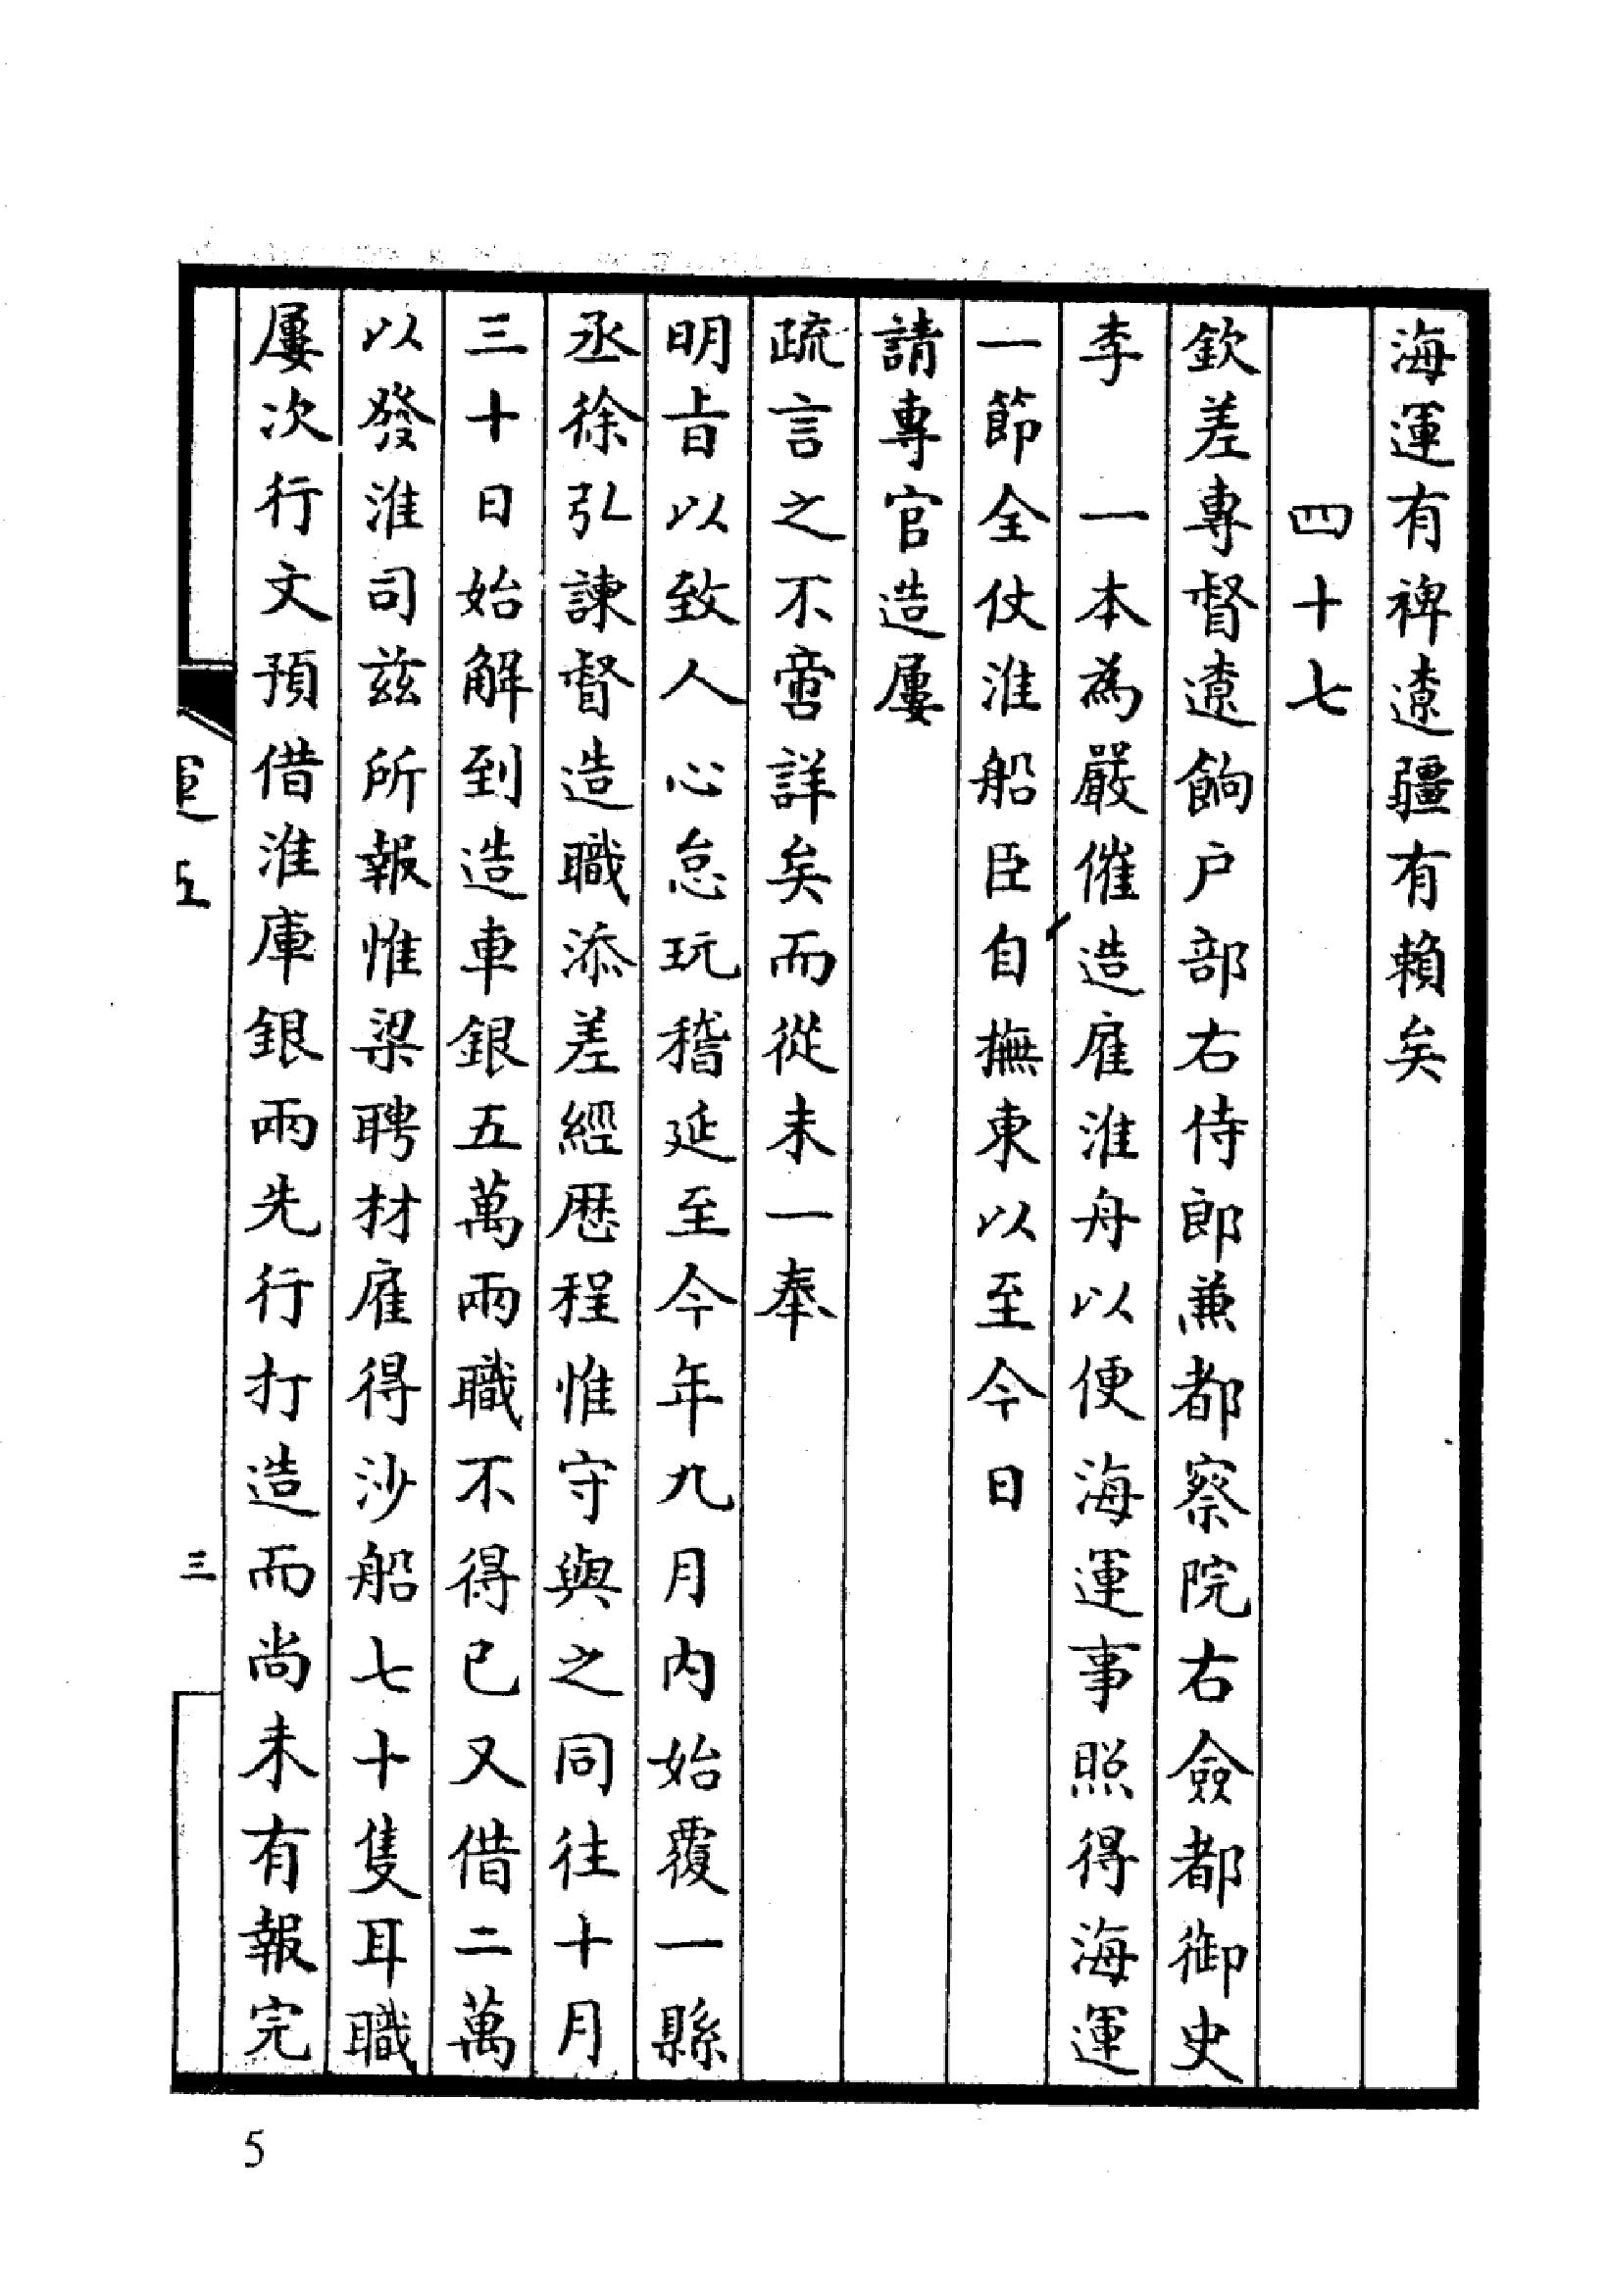 海運有裨遼疆有賴矣
四十七
欽差專督遼餉户部右侍郎兼都察院右僉都御史
李　一本為嚴催造雇淮舟以便海運事照得海運
一節全仗淮船臣自撫東以至今日
請專官造屢
疏言之不啻詳矣而從未一奉
明旨以致人心怠玩稽延至今年九月內始覆一縣
丞徐弘諫督造職添差經歷程惟守與之同往十月
三十日始解到造車銀五萬兩職不得已又借二萬
以發淮司茲所報惟梁聘材雇得沙船七十隻耳職
屢次行文預借淮庫銀兩先行打造而尚未有報完
運五
三
5